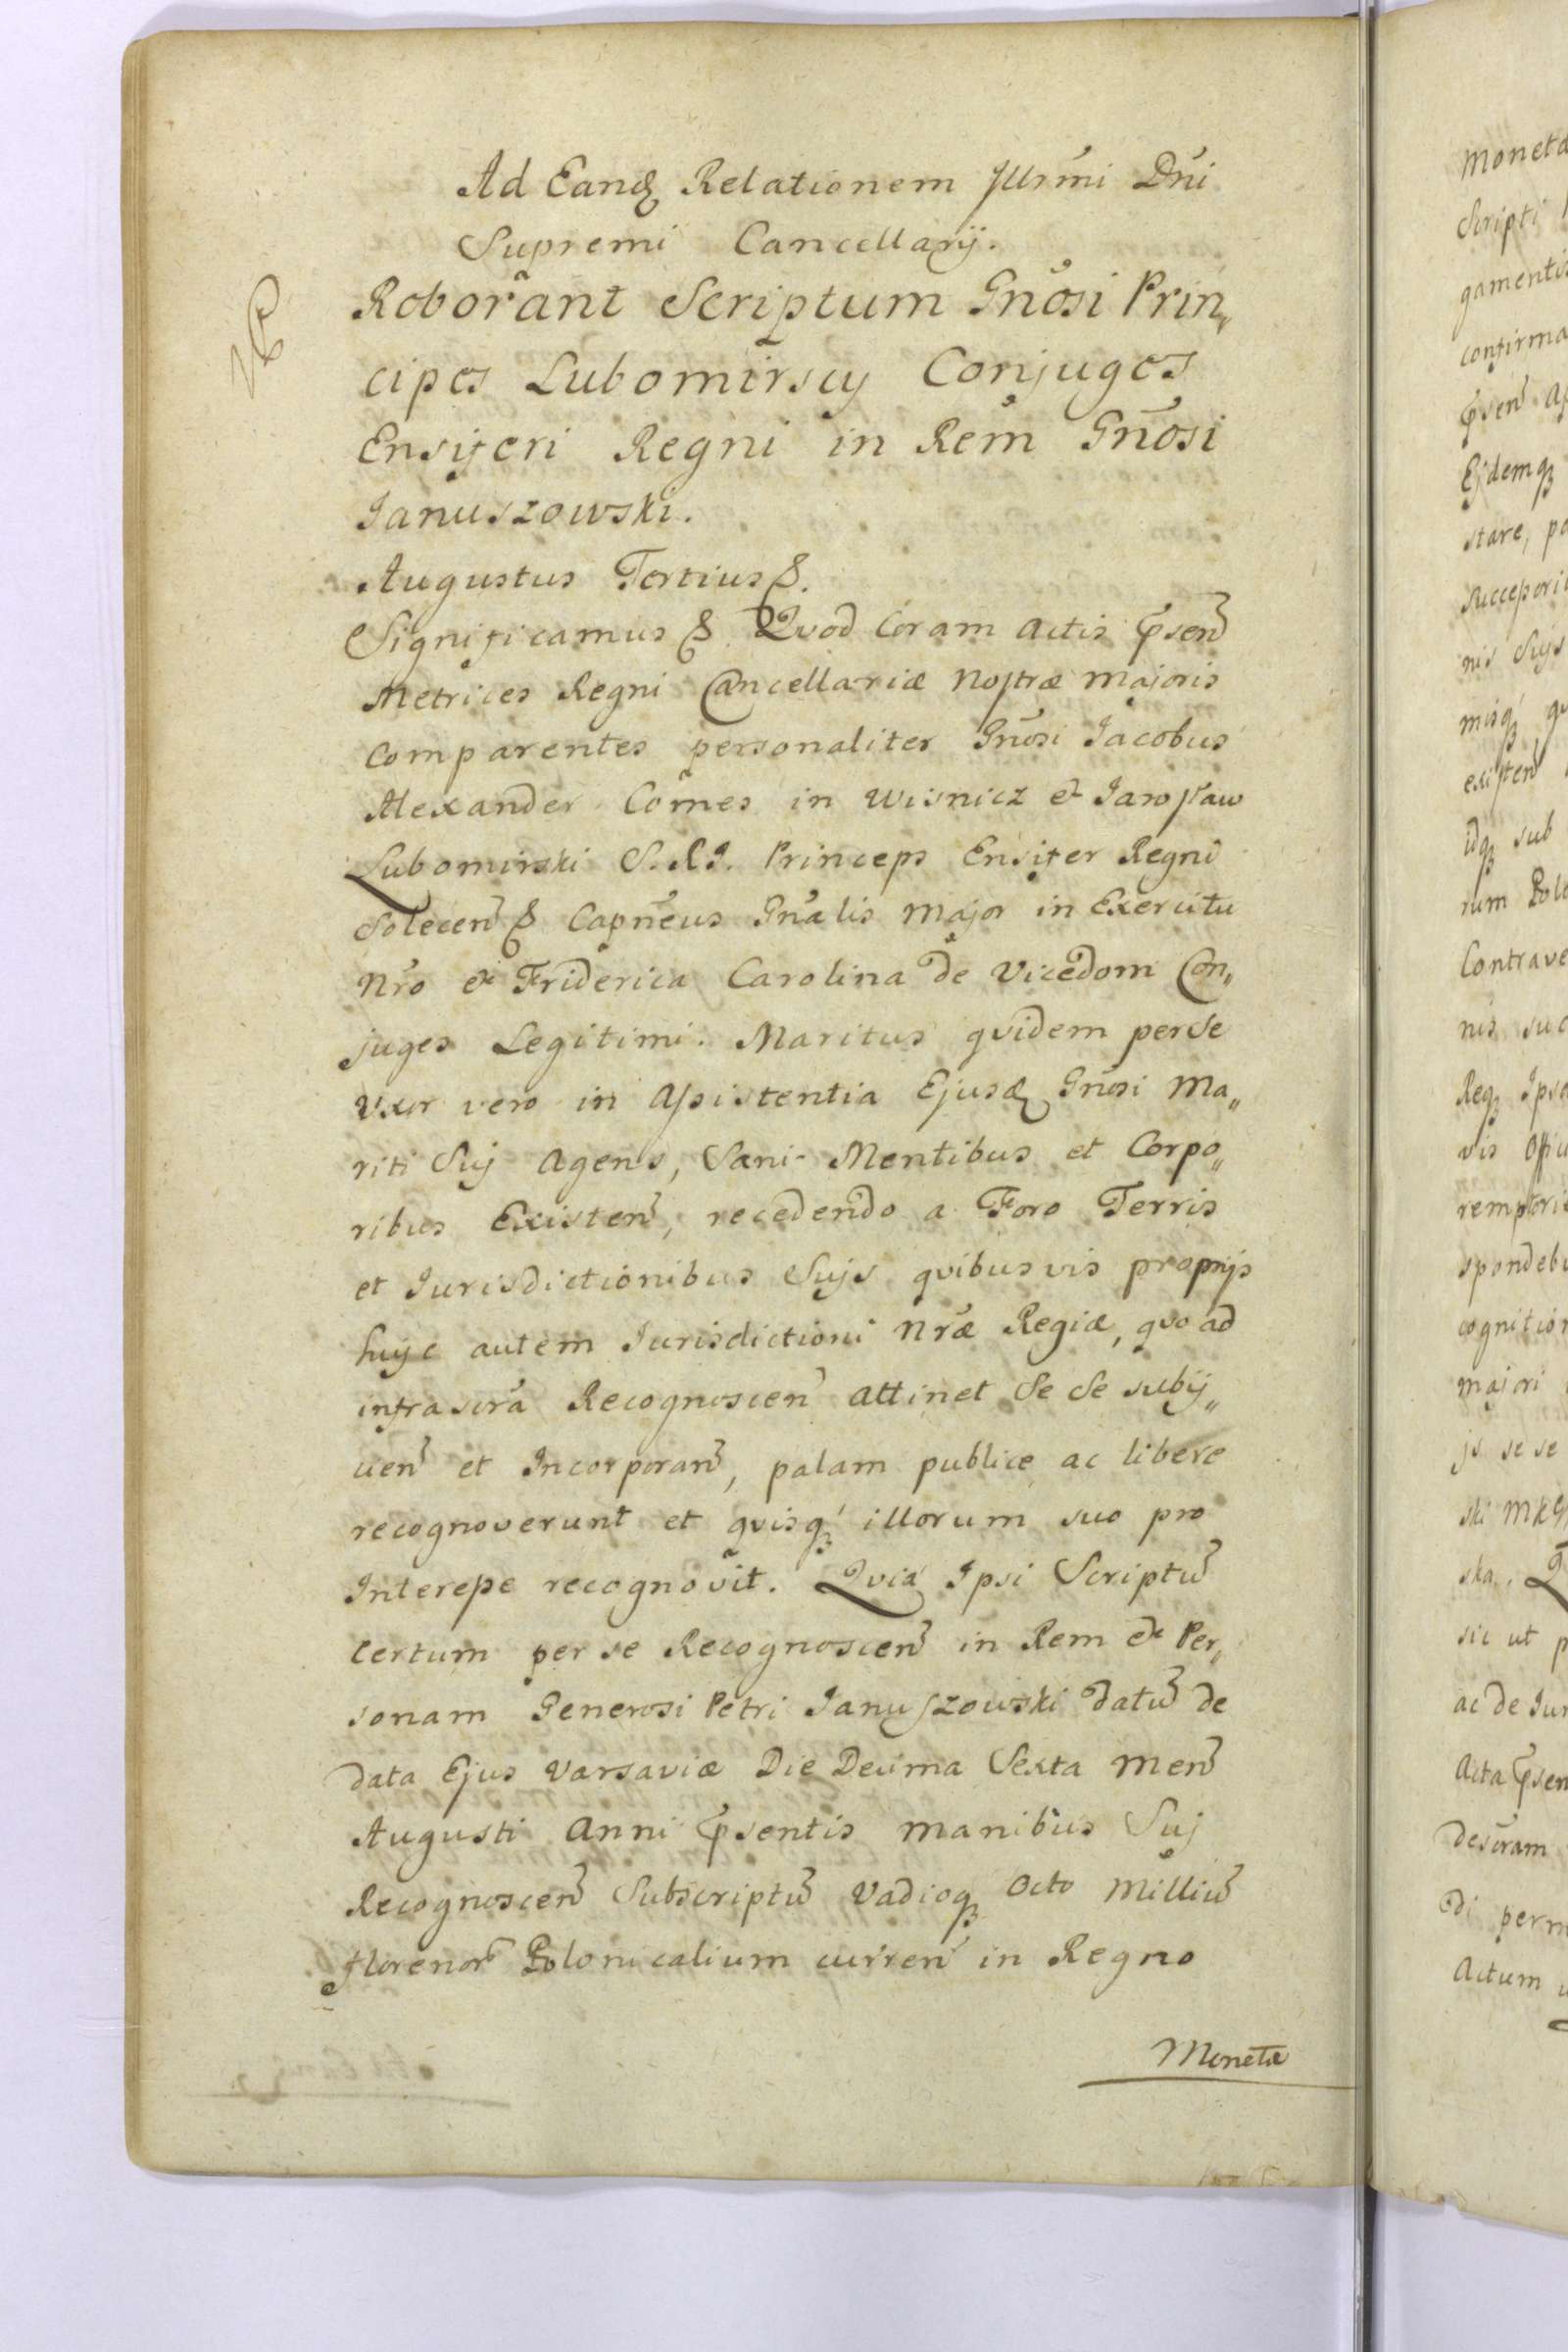 Ad Eandꝫ Relationem Jllrmi Dni
Supremi Cancellarij.
Roborant Scriptum Gnosi Prin„
cipes Lubomirscy Conjuges
Ensiferi Regni in Rem Gnosi
Januszowski.
Augustus Tertius &.
Significamus & Quod Coram Actis Psen
Metrices Regni Cancellariæ Nostræ Majoris
Comparentes personaliter Gnosi Jacobus
Alexander Comes in Wisnicz et Jarosław
Lubomirski S.R.J. Princeps Ensifer Regni
Solecen & Capneus Gnalis Major in Exercitu
Nro et Friderica Carolina de Vicedom Con„
juges Legitimi. Maritus quidem per se
Uxor vero in Assistentia Ejusdꝫ Gnosi Ma„
riti Suj Agens, Sani Mentibus et Corpo„
ribus Existen, recedendo a Foro Terris
et Jurisdictionibus Sujs quibusvis proprijs
huic autem Jurisdictioni Nræ Regiæ, quo ad
infra scra Recognoscen attinet Se Se subij„
cien et Incorporan, palam publice ac libere
recognoverunt et quisqꝫ illorum suo pro
Interesse recognovit. Quia Ipsi Scriptu
certum per se Recognoscen in Rem et Per„
sonam Generosi Petri Januszowski datu de
data Ejus Varsaviæ Die Decima Sexta Men
Augusti Anni Psentis manibus Suj
Recognoscen Subscriptu Vadioqꝫ Octo Milliu
florenor Polonicalium curren in Regno
Monetæ
moneta
Scripti
gamentis
confirma
Psen
Ejdemqꝫ
stare,
nis Sujs
misqꝫ
existen
idqꝫ sub
rum
Contrave
nis suc
Reqꝫ Ipso
vis
spondebu
cognition
majori
js se se
ski
ska.
sic ut p
ac de Jur
Acta Psen
descram
di perm
Actum